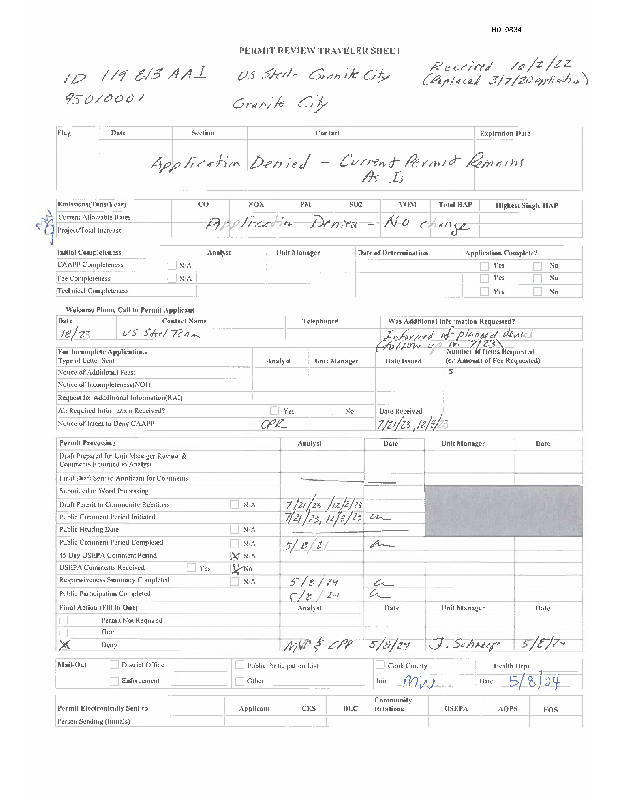 HD 0834
PERMIT REVIEW TRAVELER SHEET
ID 119 813 AAI US Steel- Granite City Received 10/2/22
95010001 Granite City (Replaced 3/7/20 application)
Flag Date Section Contact Expiration Date
Application Denied - Current Permit Remains
As Is
Emissions(Tons/Year) CO NOX PM SO2 VOM Total HAP Highest Single HAP
Current Allowable Rates
Application Denied - No change
Project/Total Increase
Initial Completeness Analyst Unit Manager Date of Determination Application Complete?
CAAPP Completeness N/A Yes No
Fee Completeness N/A Yes No
Technical Completeness Yes No
Welcome Phone Call to Permit Applicant
Date Contact Name Telephone Was Additional Information Requested?
10/23 US Steel Team Informed of planned denial
(follow up in 7/23)
For Incomplete Applications Number of Items Requested
Type of Letter Sent Analyst Unit Manager Date Issued (or Amount of Fee Requested)
Notice of Additional Fees: $
Notice of Incompleteness(NOI)
Request for Additional Information(RAI)
All Required Information Received? Yes No Date Received
Notice of Intent to Deny CAAPP CPR 7/21/23, 12/8/23
Permit Processing Analyst Date Unit Manager Date
Draft Prepared for Unit Manager Review &
Comments Returned to Analyst
Final Draft Sent to Applicant for Comments
Submitted to Word Processing
Draft Permit to Community Relations N/A 7/21/23 /12/8/23
Public Comment Period Initiated 7/21/23, 12/8/23
Public Hearing Date N/A
Public Comment Period Completed N/A
45 Day USEPA Comment Period N/A
USEPA Comments Received Yes No
Responsiveness Summary Completed N/A 5/8/24
Public Participation Completed 5/8/24
Final Action (Fill In One) Analyst Date Unit Manager Date
Permit Not Required
Deny 5/8/24 5/8/24
Mail-Out District Office Public Participation List Cook County Health Dept
Enforcement Other Init Date 5/8/24
Permit Electronically Sent to Applicant CES DLC Community Relations USEPA AQPS FOS
Person Sending (Initials)